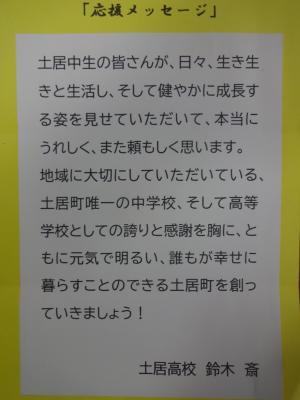 「応援メッセージ」
土居中生の皆さんが、日々、生き生
きと生活し、そして健やかに成長す
る姿を見せていただいて、本当に
うれしく、また頼もしく思います。
地域に大切にしていただいている、
土居町唯一の中学校、そして高等
学校としての誇りと感謝を胸に、と
もに元気で明るい、誰もが幸せに
暮らすことのできる土居町を創っ
ていきましょう！
土居高校 鈴木 斎